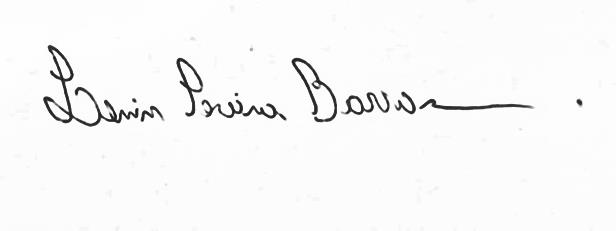 Lenin Pereira Barros